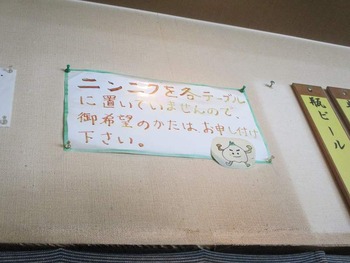 ニンニクを各テーブル
に置いていませんので、
御希望のかたは、お申し付け
下さい。
瓶ビール